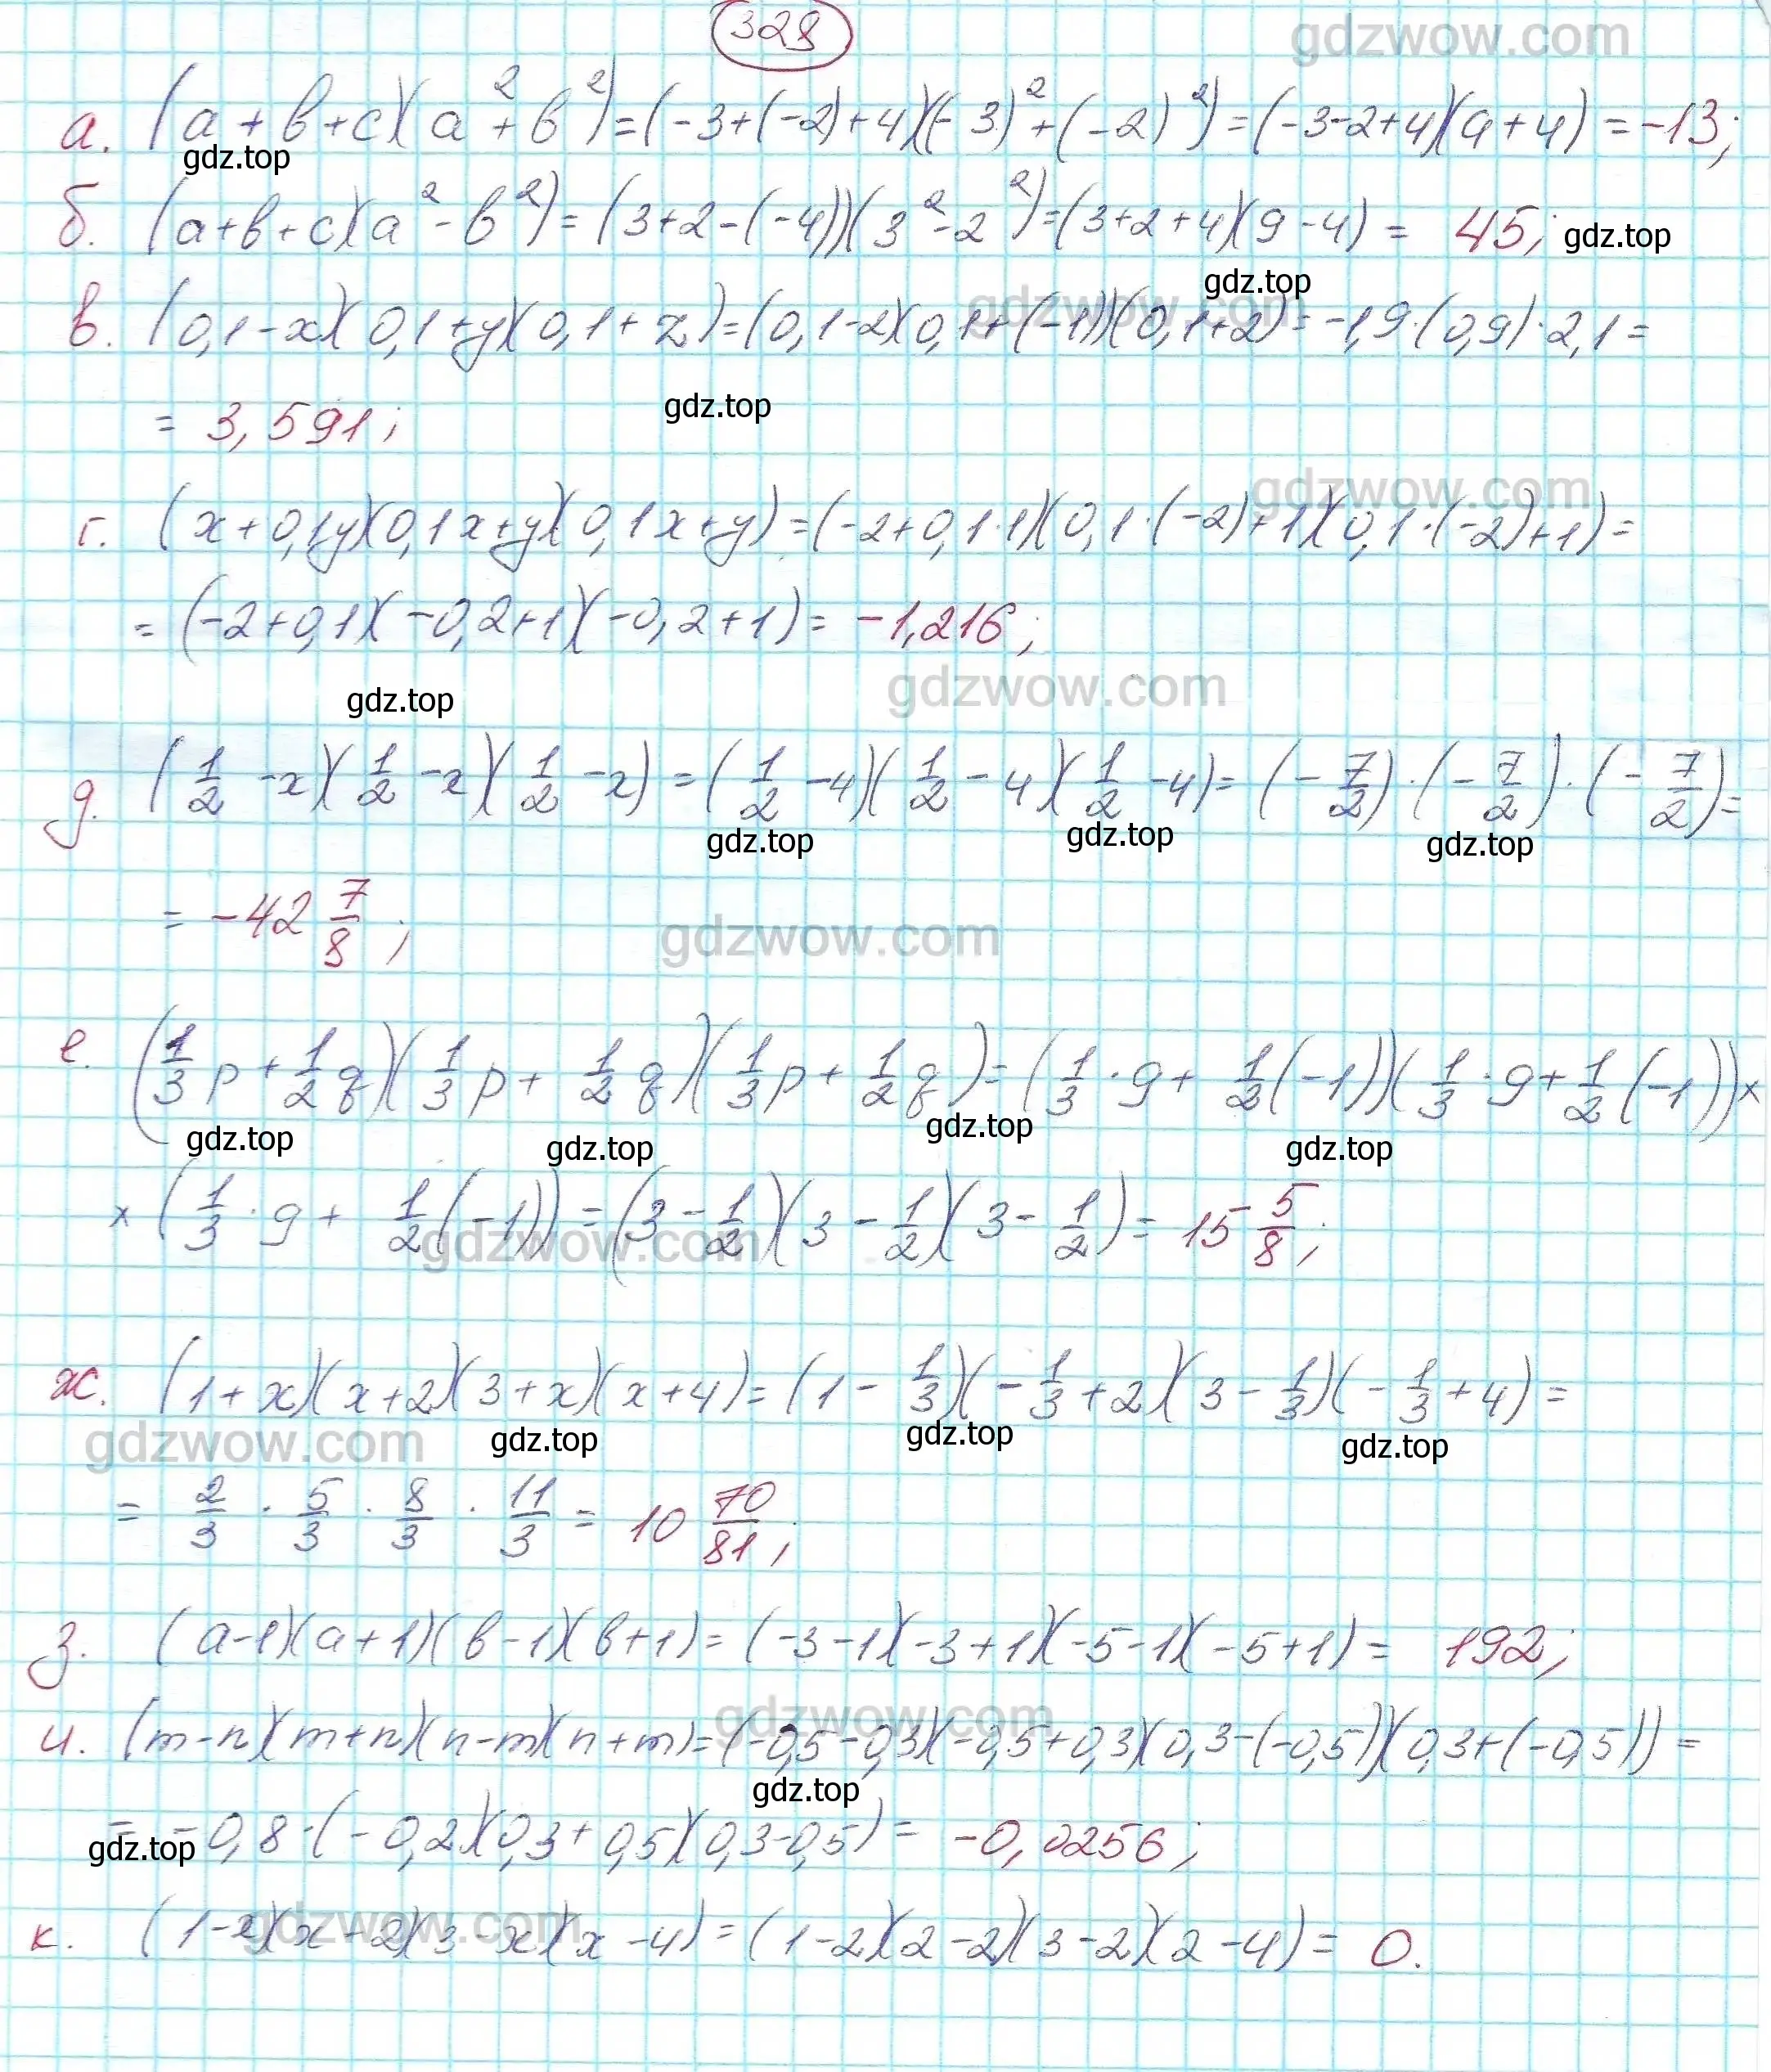 328
gdzwow.com
а. (a+b+c)(a²+b²)=(-3+(-2)+4)((-3)²+(-2)²)=(-3-2+4)(9+4)=-13;
gdz.top
б. (a+b+c)(a²-b²)=(3+2-(-4))(3²-2²)=(3+2+4)(9-4)= 45; gdz.top
gdz.top
gdzwow.com
в. (0,1-x)(0,1+y)(0,1+z)=(0,1-2)(0,1+(-1))(0,1+2)=-1,9·(0,9)·2,1=
= 3,591; gdz.top
gdzwow.com
г. (x+0,1y)(0,1x+y)(0,1x+y)=(-2+0,1·1)(0,1·(-2)+1)(0,1·(-2)+1)=
=(-2+0,1)(-0,2+1)(-0,2+1)= -1,216;
gdz.top gdzwow.com
д. (1/2-x)(1/2-x)(1/2-x)=(1/2-4)(1/2-4)(1/2-4)=(-7/2)·(-7/2)·(-7/2)=
gdz.top gdz.top gdz.top
= -42 7/8; gdzwow.com
е. (1/3p+1/2q)(1/3p+1/2q)(1/3p+1/2q)=(1/3·9+1/2(-1))(1/3·9+1/2(-1))×
gdz.top gdz.top gdz.top gdz.top
×(1/3·9+1/2(-1))=(3-1/2)(3-1/2)(3-1/2)= 15 5/8;
gdzwow.com
ж. (1+x)(x+2)(3+x)(x+4)=(1-1/3)(-1/3+2)(3-1/3)(-1/3+4)=
gdzwow.com gdz.top gdz.top gdz.top
= 2/3 · 5/3 · 8/3 · 11/3 = 10 70/81;
з. (a-1)(a+1)(b-1)(b+1)=(-3-1)(-3+1)(-5-1)(-5+1)= 192;
gdzwow.com
и. (m-n)(m+n)(n-m)(n+m)=(-0,5-0,3)(-0,5+0,3)(0,3-(-0,5))(0,3+(-0,5))=
gdz.top
= -0,8·(-0,2)(0,3+0,5)(0,3-0,5)= -0,0256;
gdz.top
gdzwow.com
к. (1-x)(x-2)(3-x)(x-4)=(1-2)(2-2)(3-2)(2-4)= 0.